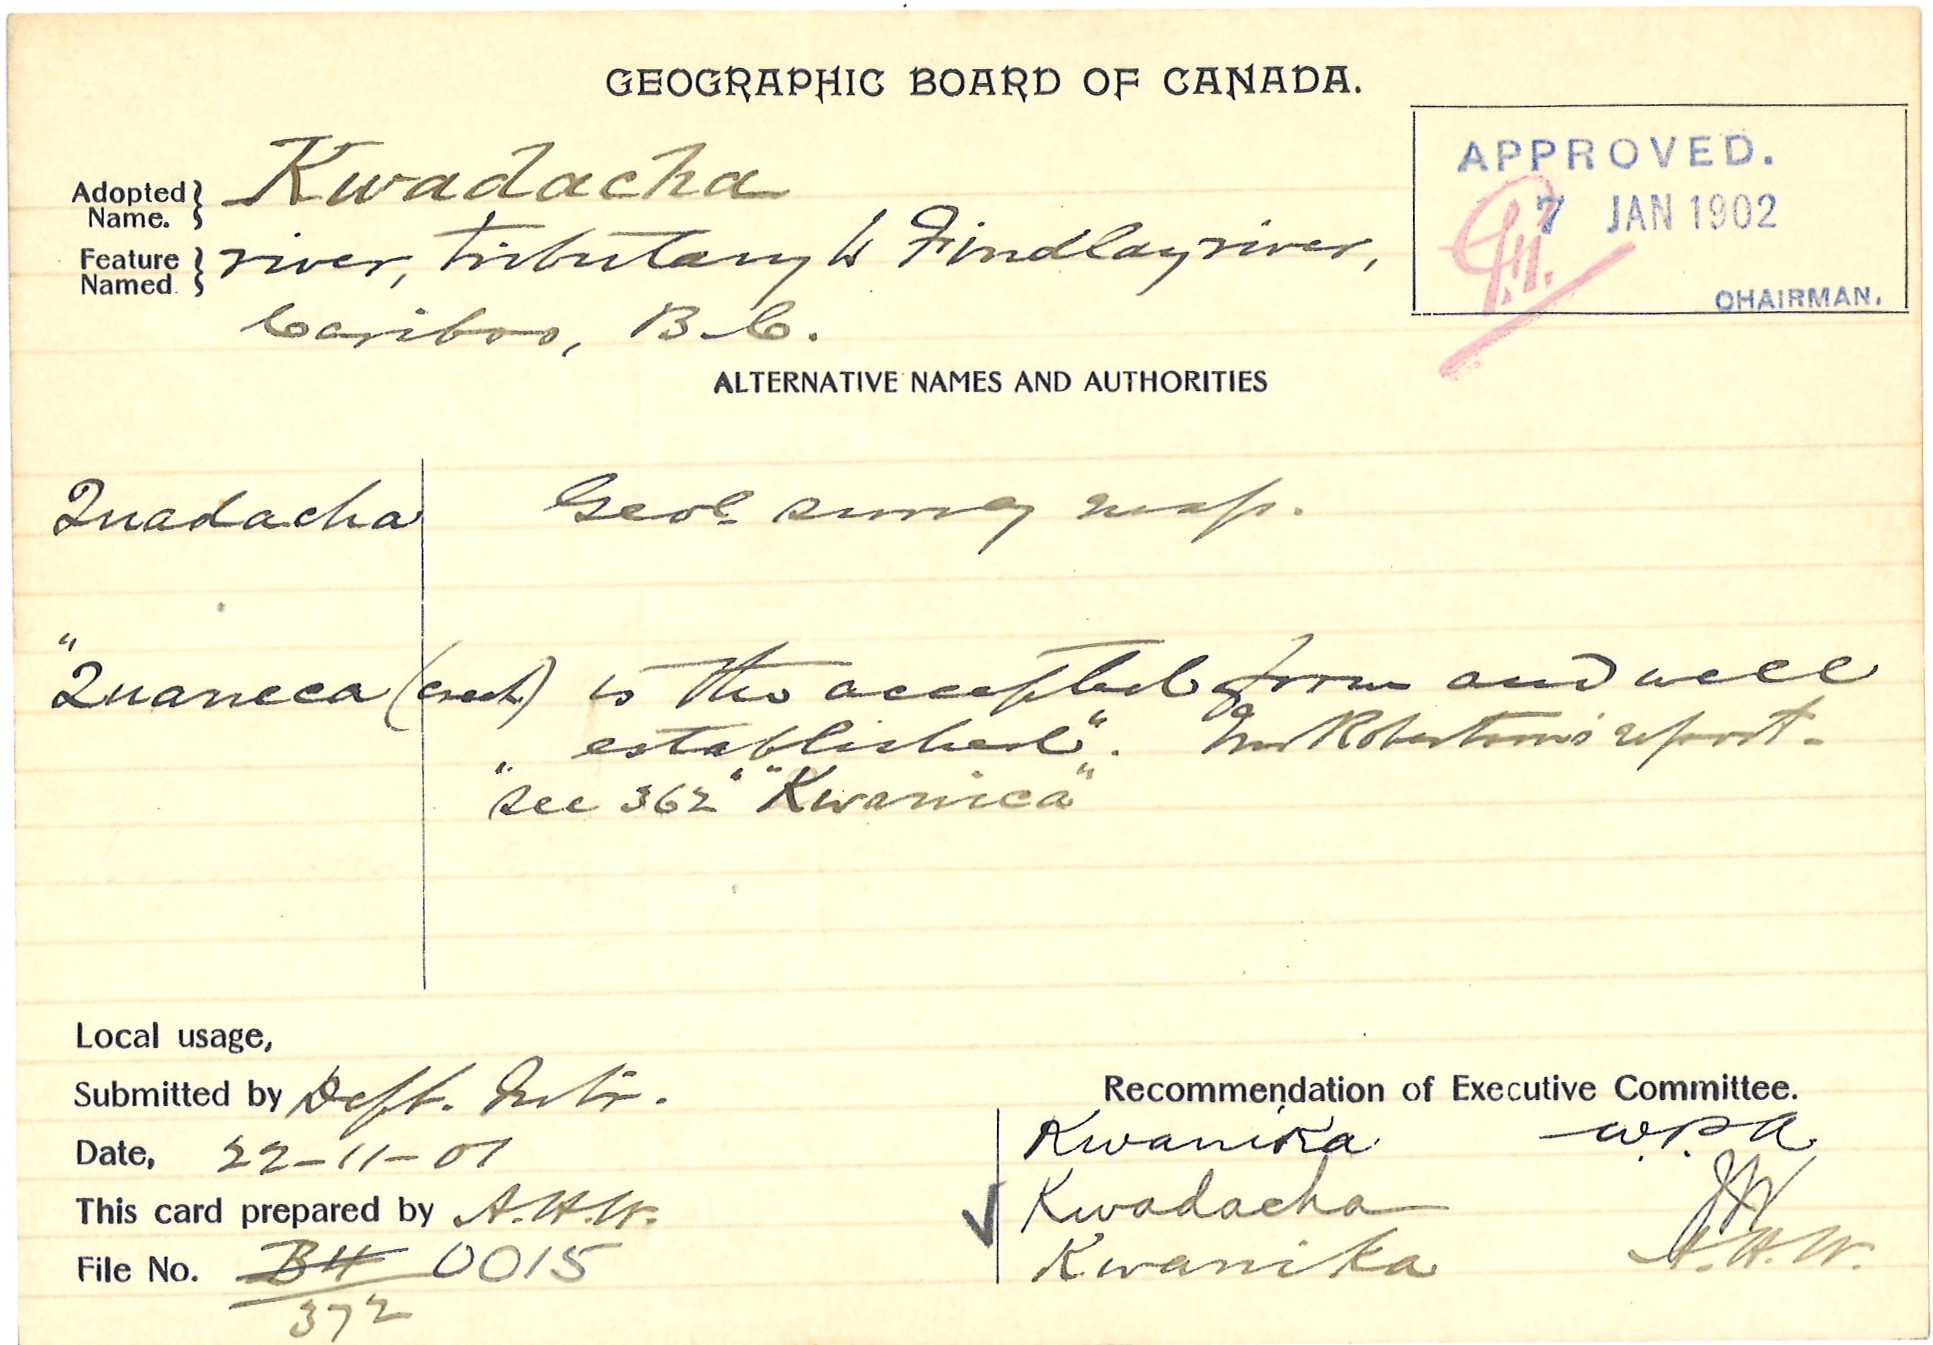 GEOGRAPHIC BOARD OF CANADA.
APPROVED.
7 JAN 1902
CHAIRMAN.
Adopted Name. } Kwadacha
Feature Named. } river, tributary to Findlay river,
Cariboo, B.C.
ALTERNATIVE NAMES AND AUTHORITIES
Quadacha Geol. survey map.
"Quaneca (creek) is the accepted form and well
established". Mr Robertson's report.
"see 362" "Kwanica"
Local usage,
Submitted by Dept. Intr.
Date, 22-11-01
This card prepared by A.H.W.
File No. B4 0015
372
Recommendation of Executive Committee.
Kwanika W.P.A.
Kwadacha
Kwanika A.H.W.